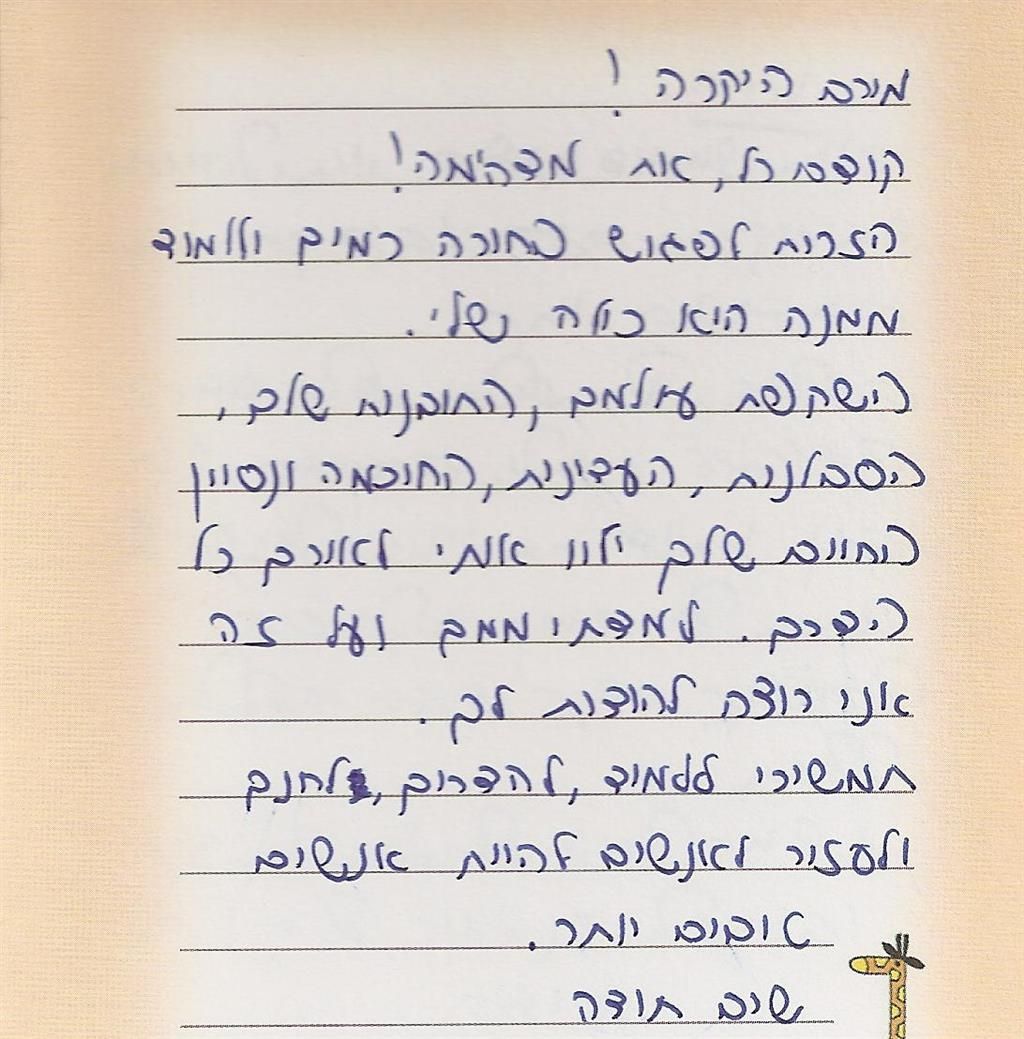 מירב היקרה !
קודם כל, את מדהימה!
הזכות לפגוש בחורה כמוך וללמוד
ממנה היא כולה שלי.
השקפת עולמך, התובנות שלך,
הסבלנות, העדינות, החוכמה ונסיון
החיים שלך ילוו אותי לאורך כל
הדרך. למדתי ממך ועל זה
אני רוצה להודות לך.
תמשיכי ללמוד, להדריך, לחנך
ולעזור לאנשים להיות אנשים
טובים יותר.
שוב תודה